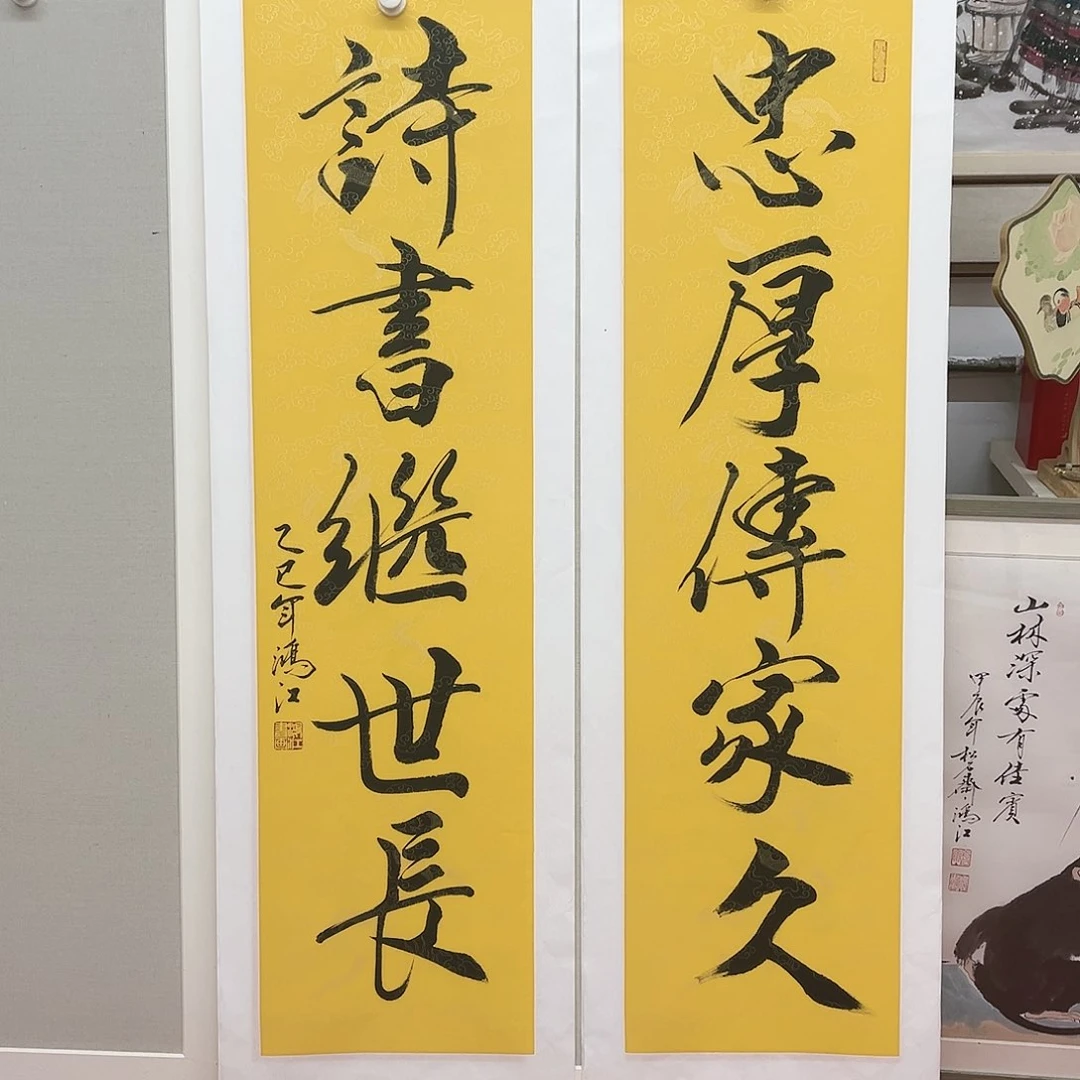 忠厚傳家久
詩書繼世長
乙巳年鴻江
山林深處有佳賓
甲辰年松石齋鴻江